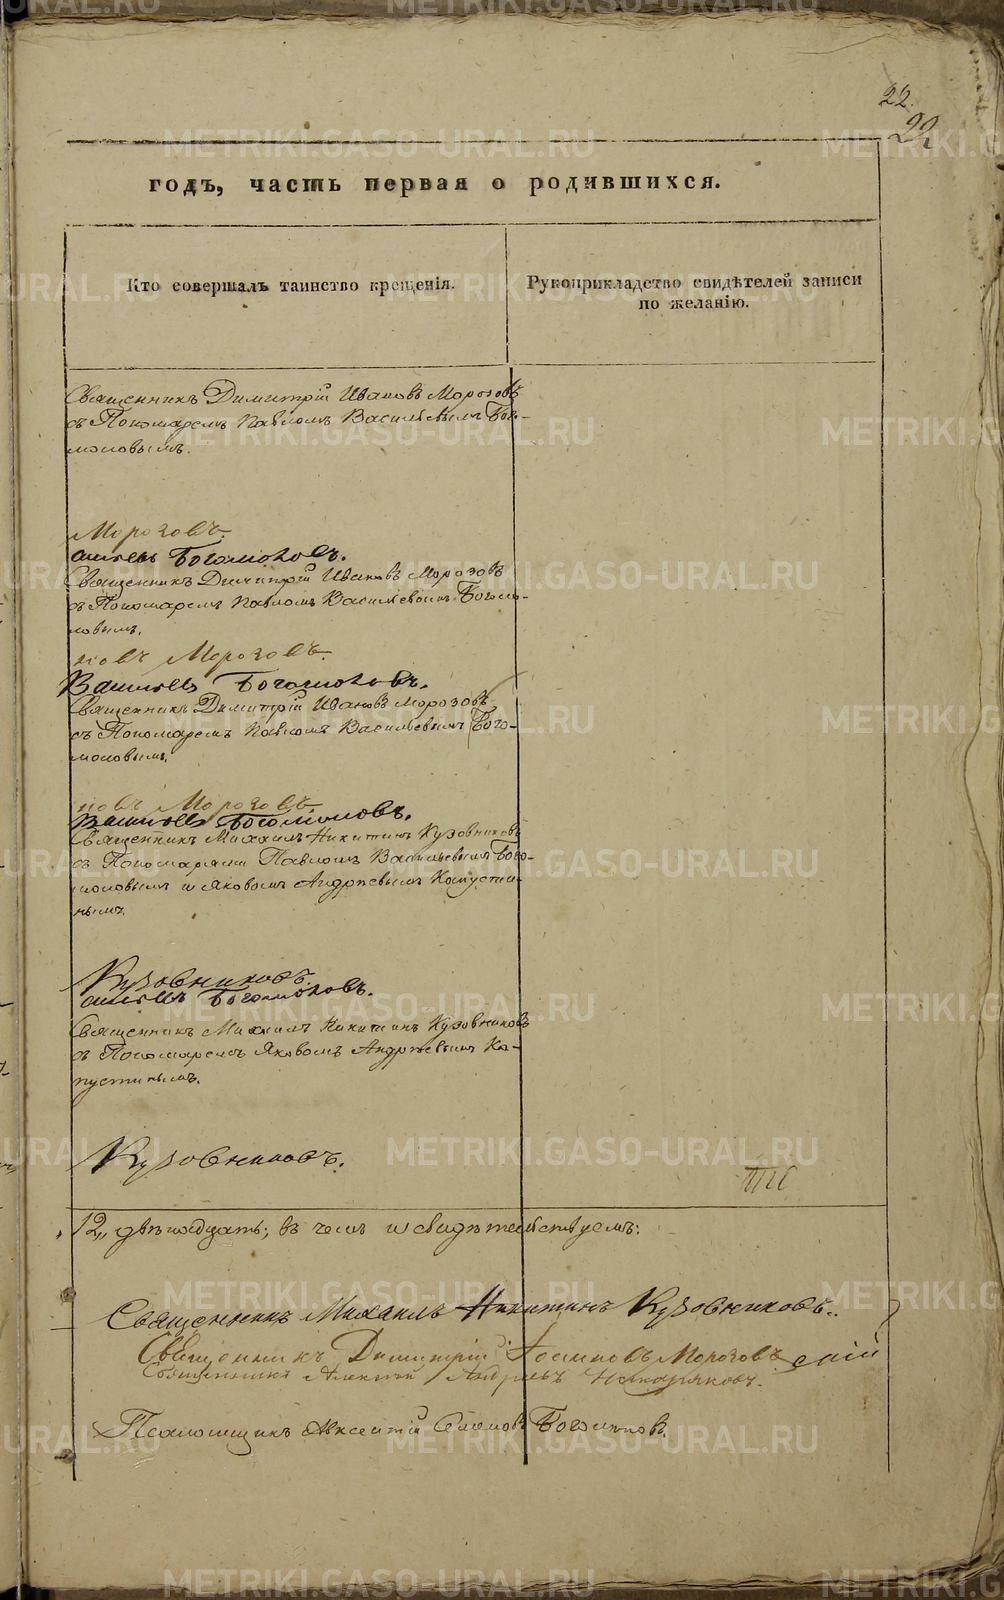 22.
22
годъ, часть первая о родившихся.
Кто совершалъ таинство крещенія.
Рукоприкладство свидѣтелей записи
по желанію.
Священникъ Димитрій Ивановъ Морозовъ
съ Пономаремъ Павломъ Васильевымъ Бого-
моловымъ.
Морозовъ.
Богомоловъ.
Священникъ Димитрій Ивановъ Морозовъ
съ Пономаремъ Павломъ Васильевымъ Богомо-
ловымъ.
новъ Морозовъ.
Васильевъ Богомоловъ.
Священникъ Димитрій Ивановъ Морозовъ
съ Пономаремъ Павломъ Васильевымъ Бого-
моловымъ.
новъ Морозовъ
Васильевъ Богомоловъ.
Священникъ Михаилъ Никитинъ Кузовниковъ
съ Пономарями Павломъ Васильевымъ Бого-
моловымъ и Яковомъ Андреевымъ Капусти-
нымъ.
Кузовниковъ.
Богомоловъ.
Священникъ Михаилъ Никитинъ Кузовниковъ
съ Пономаремъ Яковомъ Андреевымъ Ка-
пустинымъ.
Кузовниковъ.
12,, двѣнадцать; въ чемъ и свидѣтельствуемъ:
Священникъ Михаилъ Никитинъ Кузовниковъ.
Священникъ Димитрій Морозовъ
Священникъ Алексій Андреевъ
Псаломщикъ Авксентій Семеновъ
METRIKI.GASO-URAL.RU